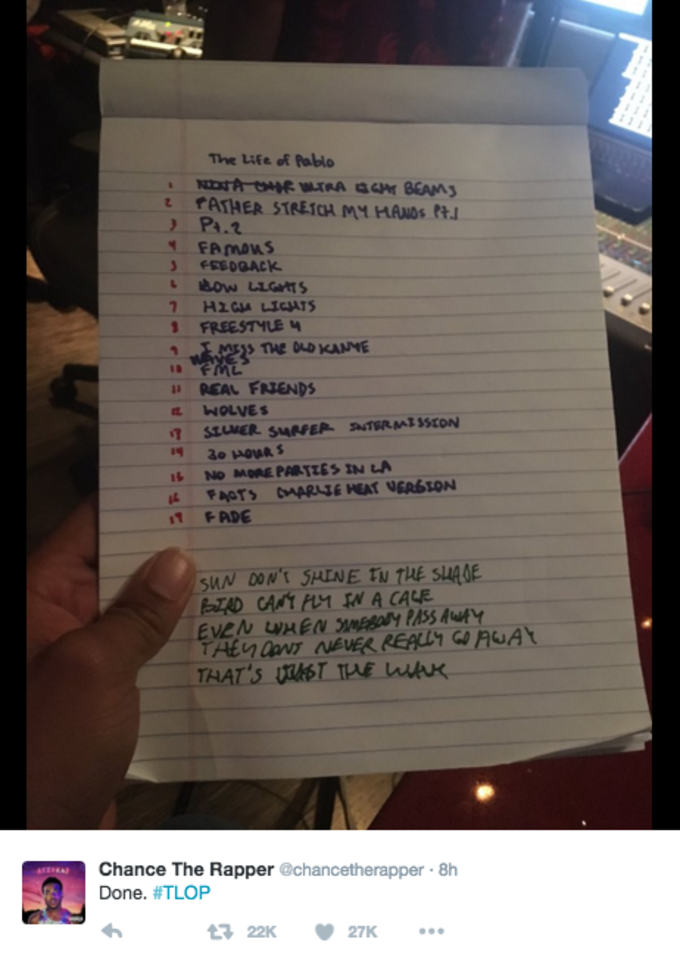 The Life of Pablo
1 ULTRA LIGHT BEAMS
2 FATHER STRETCH MY HANDS Pt.1
3 Pt.2
4 FAMOUS
5 FEEDBACK
6 LOW LIGHTS
7 HIGH LIGHTS
8 FREESTYLE 4
9 I MISS THE OLD KANYE
WAVES
10 FML
11 REAL FRIENDS
12 WOLVES
13 SILVER SURFER INTERMISSION
14 30 HOURS
15 NO MORE PARTIES IN LA
16 FACTS CHARLIE HEAT VERSION
17 FADE
SUN DON'T SHINE IN THE SHADE
BIRD CAN'T FLY IN A CAGE
EVEN WHEN SOMEBODY PASS AWAY
THEY DONT NEVER REALLY GO AWAY
THAT'S JUST THE WAVE
Chance The Rapper @chancetherapper · 8h
Done. #TLOP
22K 27K